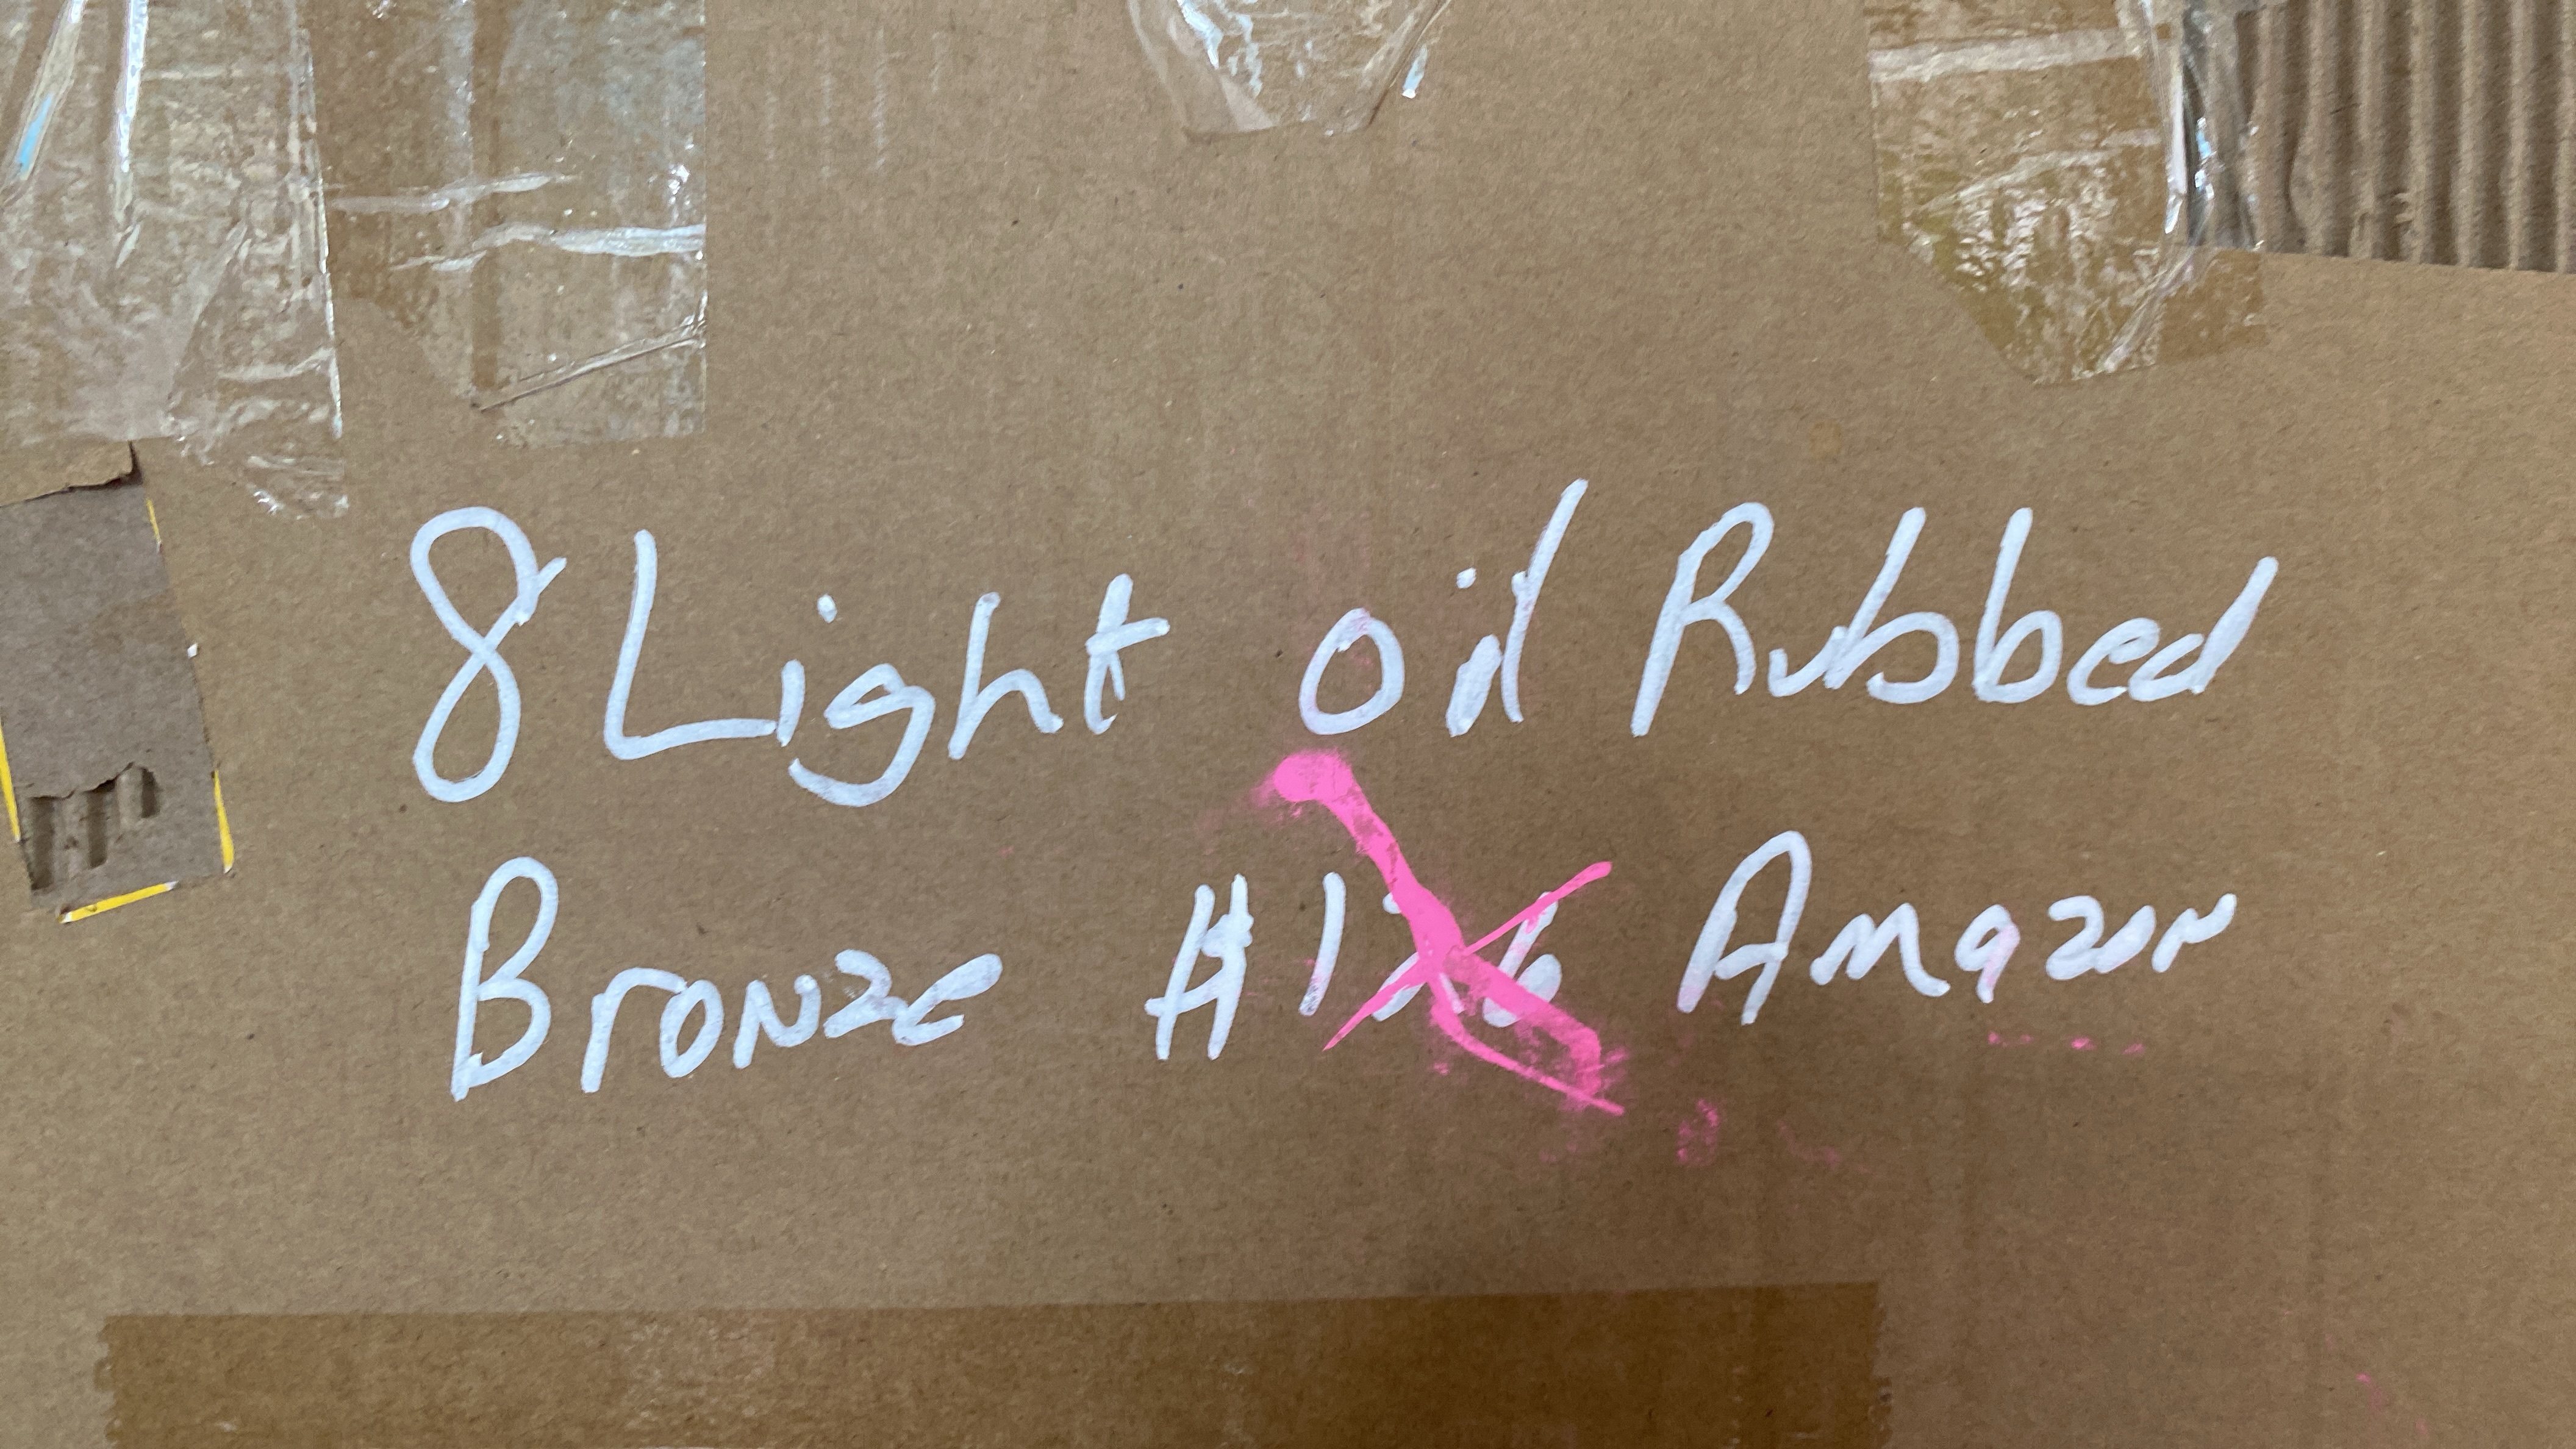 8 Light oil Rubbed
Bronze Amazon